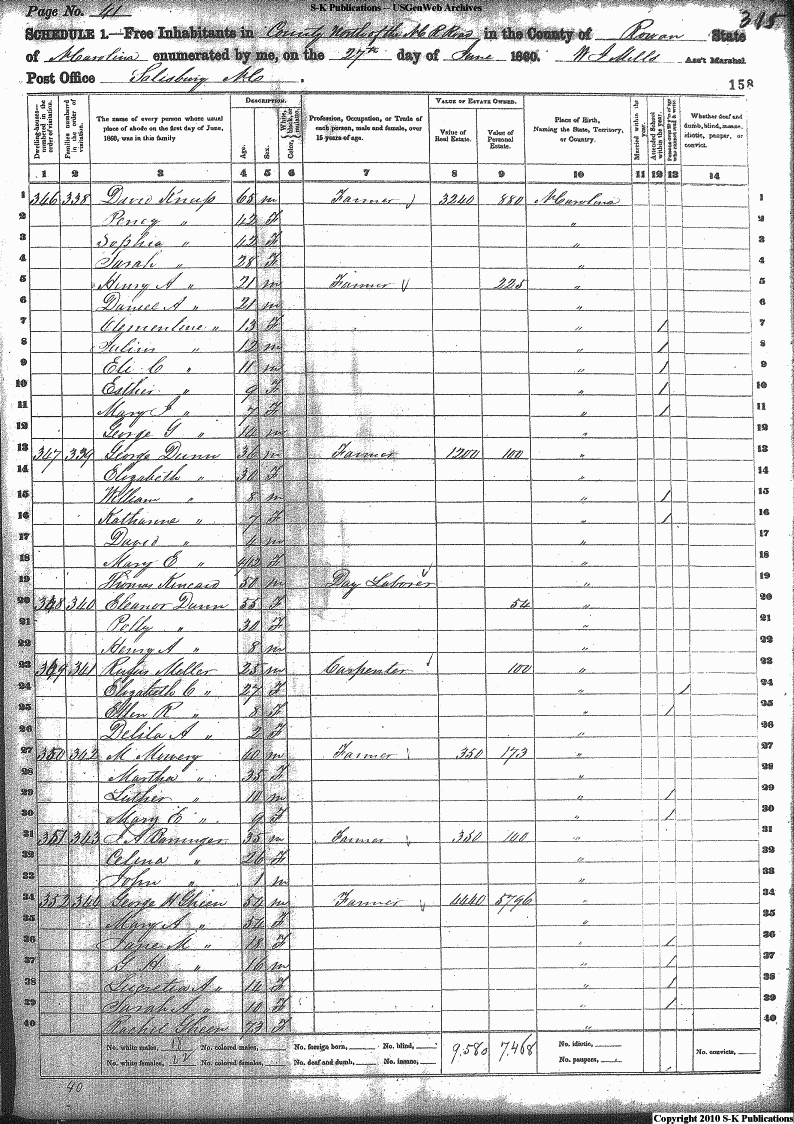 S-K Publications -- USGenWeb Archives
Page No. 41
315
SCHEDULE 1.—Free Inhabitants in County North of the N.C. R. Road in the County of Rowan State
of N Carolina enumerated by me, on the 27th day of June 1860. W J Mills Ass't Marshal.
Post Office Salisbury N C.
158
Dwelling-houses—numbered in the order of visitation.
Families numbered in the order of visitation.
The name of every person whose usual place of abode on the first day of June, 1860, was in this family
DESCRIPTION.
Age.
Sex.
Color, White, black, or mulatto.
Profession, Occupation, or Trade of each person, male and female, over 15 years of age.
VALUE OF ESTATE OWNED.
Value of Real Estate.
Value of Personal Estate.
Place of Birth, Naming the State, Territory, or Country.
Married within the year.
Attended School within the year.
Persons over 20 y'rs of age who cannot read & write.
Whether deaf and dumb, blind, insane, idiotic, pauper, or convict.
1 2 3 4 5 6 7 8 9 10 11 12 13 14
1 346 338 David Knup 65 m Farmer 3240 880 N Carolina 1
2 " 42 F " 2
3 Sophia " 42 F " 3
4 Sarah " 28 F " 4
5 Henry A " 21 m Farmer 225 " 5
6 Daniel A " 21 m " 6
7 Clementine " 13 F " / 7
8 Julius " 12 m " / 8
9 Eli C " 11 m " / 9
10 Esther " 9 F " / 10
11 Mary J " 7 F " / 11
12 George G " m " 12
13 347 339 George Dunn 36 m Farmer 1200 100 " 13
14 Elizabeth " 30 F " 14
15 William " 8 m " / 15
16 Katharine " 7 F " / 16
17 David " m " 17
18 Mary E " 4/12 F " 18
19 Thomas Kincaid 50 m Day Laborer " 19
20 348 340 Eleanor Dunn 55 F 54 " 20
21 Polly " 30 F " 21
22 Henry A " 8 m " 22
23 349 341 Rufus Moller 25 m Carpenter 100 " 23
24 Elizabeth C " 27 F " / 24
25 Ellen R " 8 F " / 25
26 Delila A " 2 F " 26
27 350 342 M Mowery 60 m Farmer 350 173 " 27
28 Martha " 35 F " 28
29 Luther " 10 m " / 29
30 Mary E " 9 F " / 30
31 351 343 J A Barringer 35 m Farmer 350 140 " 31
32 Celena " 26 F " 32
33 John " 1 m " 33
34 352 344 George H Gheen 54 m Farmer 4440 5796 " 34
35 Mary A " 54 F 35
36 Jane M " 18 F / 36
37 G H " 16 m / 37
38 Lucretia A " 14 F / 38
39 Sarah A " 10 F / 39
40 Rachel Gheen 73 F " 40
No. white males, 18 No. colored males, No. foreign born, No. blind, 9.580 7.468 No. idiotic,
No. white females, 22 No. colored females, No. deaf and dumb, No. insane, No. paupers, No. convicts,
40
Copyright 2010 S-K Publications